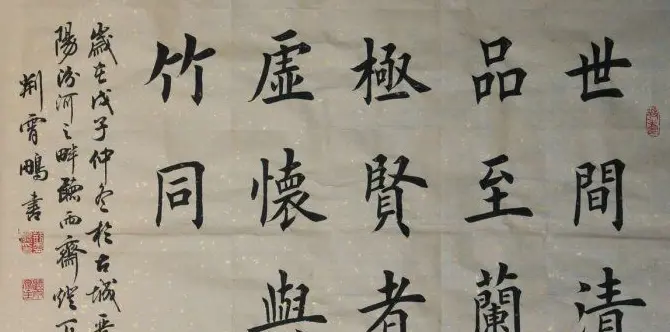 世間清
品至蘭
極賢者
虛懷與
竹同
歲在戊子仲冬於古城晉
陽汾河之畔聽雨齋燈下
荆霄鵬書